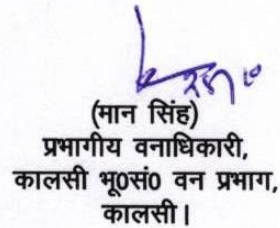 (मान सिंह)
प्रभागीय वनाधिकारी,
कालसी भू0सं0 वन प्रभाग,
कालसी।